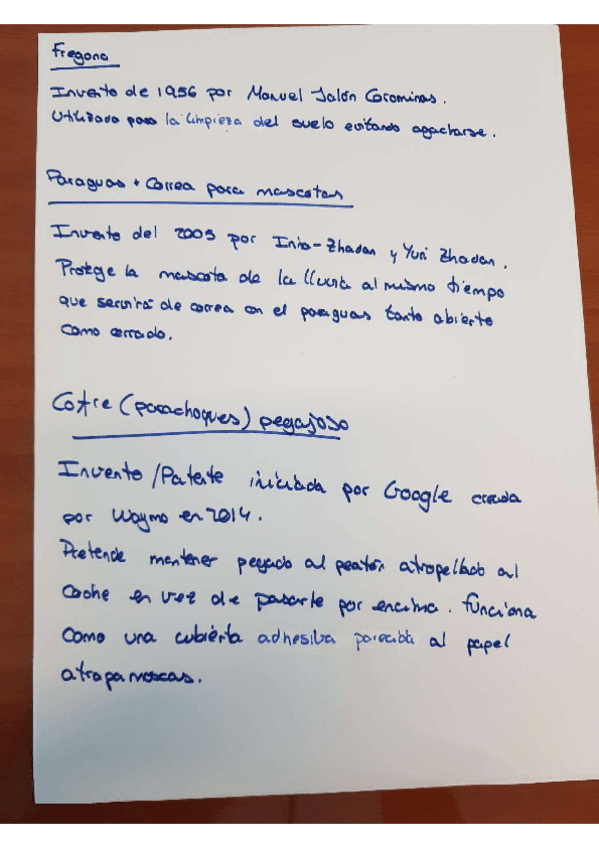 Fregona
Invento de 1956 por Manuel Jalón Corominas.
Utilizado para la limpieza del suelo evitando agacharse.
Paraguas + Correa para mascotas
Invento del 2005 por Inia-Zhadan y Yuri Zhadan.
Protege la mascota de la lluvia al mismo tiempo
que servirá de correa con el paraguas tanto abierto
como cerrado.
Cofre (parachoques) pegajoso
Invento/Patente iniciada por Google creada
por Waymo en 2014.
Pretende mantener pegado al peatón atropellado al
coche en vez de pasarle por encima. Funciona
como una cubierta adhesiva parecida al papel
atrapamoscas.